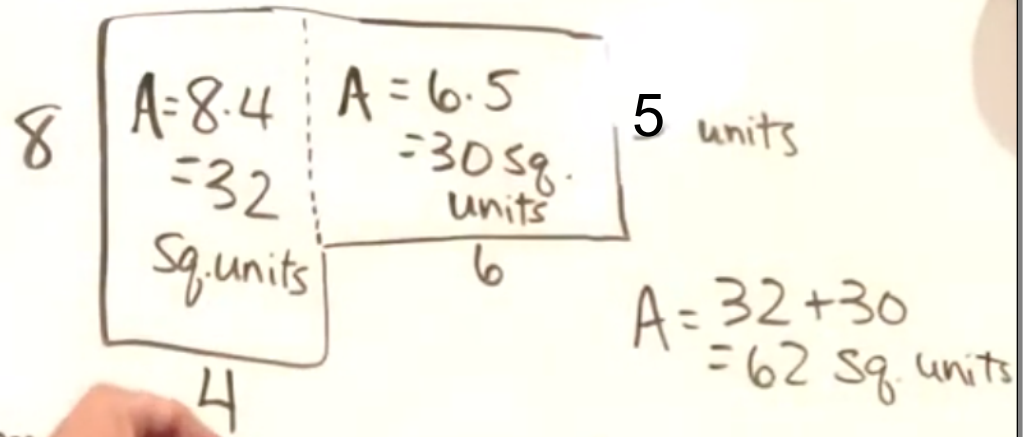 8
A=8.4
=32
Sq.units
4
A=6.5
=30 sq.
units
6
5 units
A=32+30
=62 sq. units